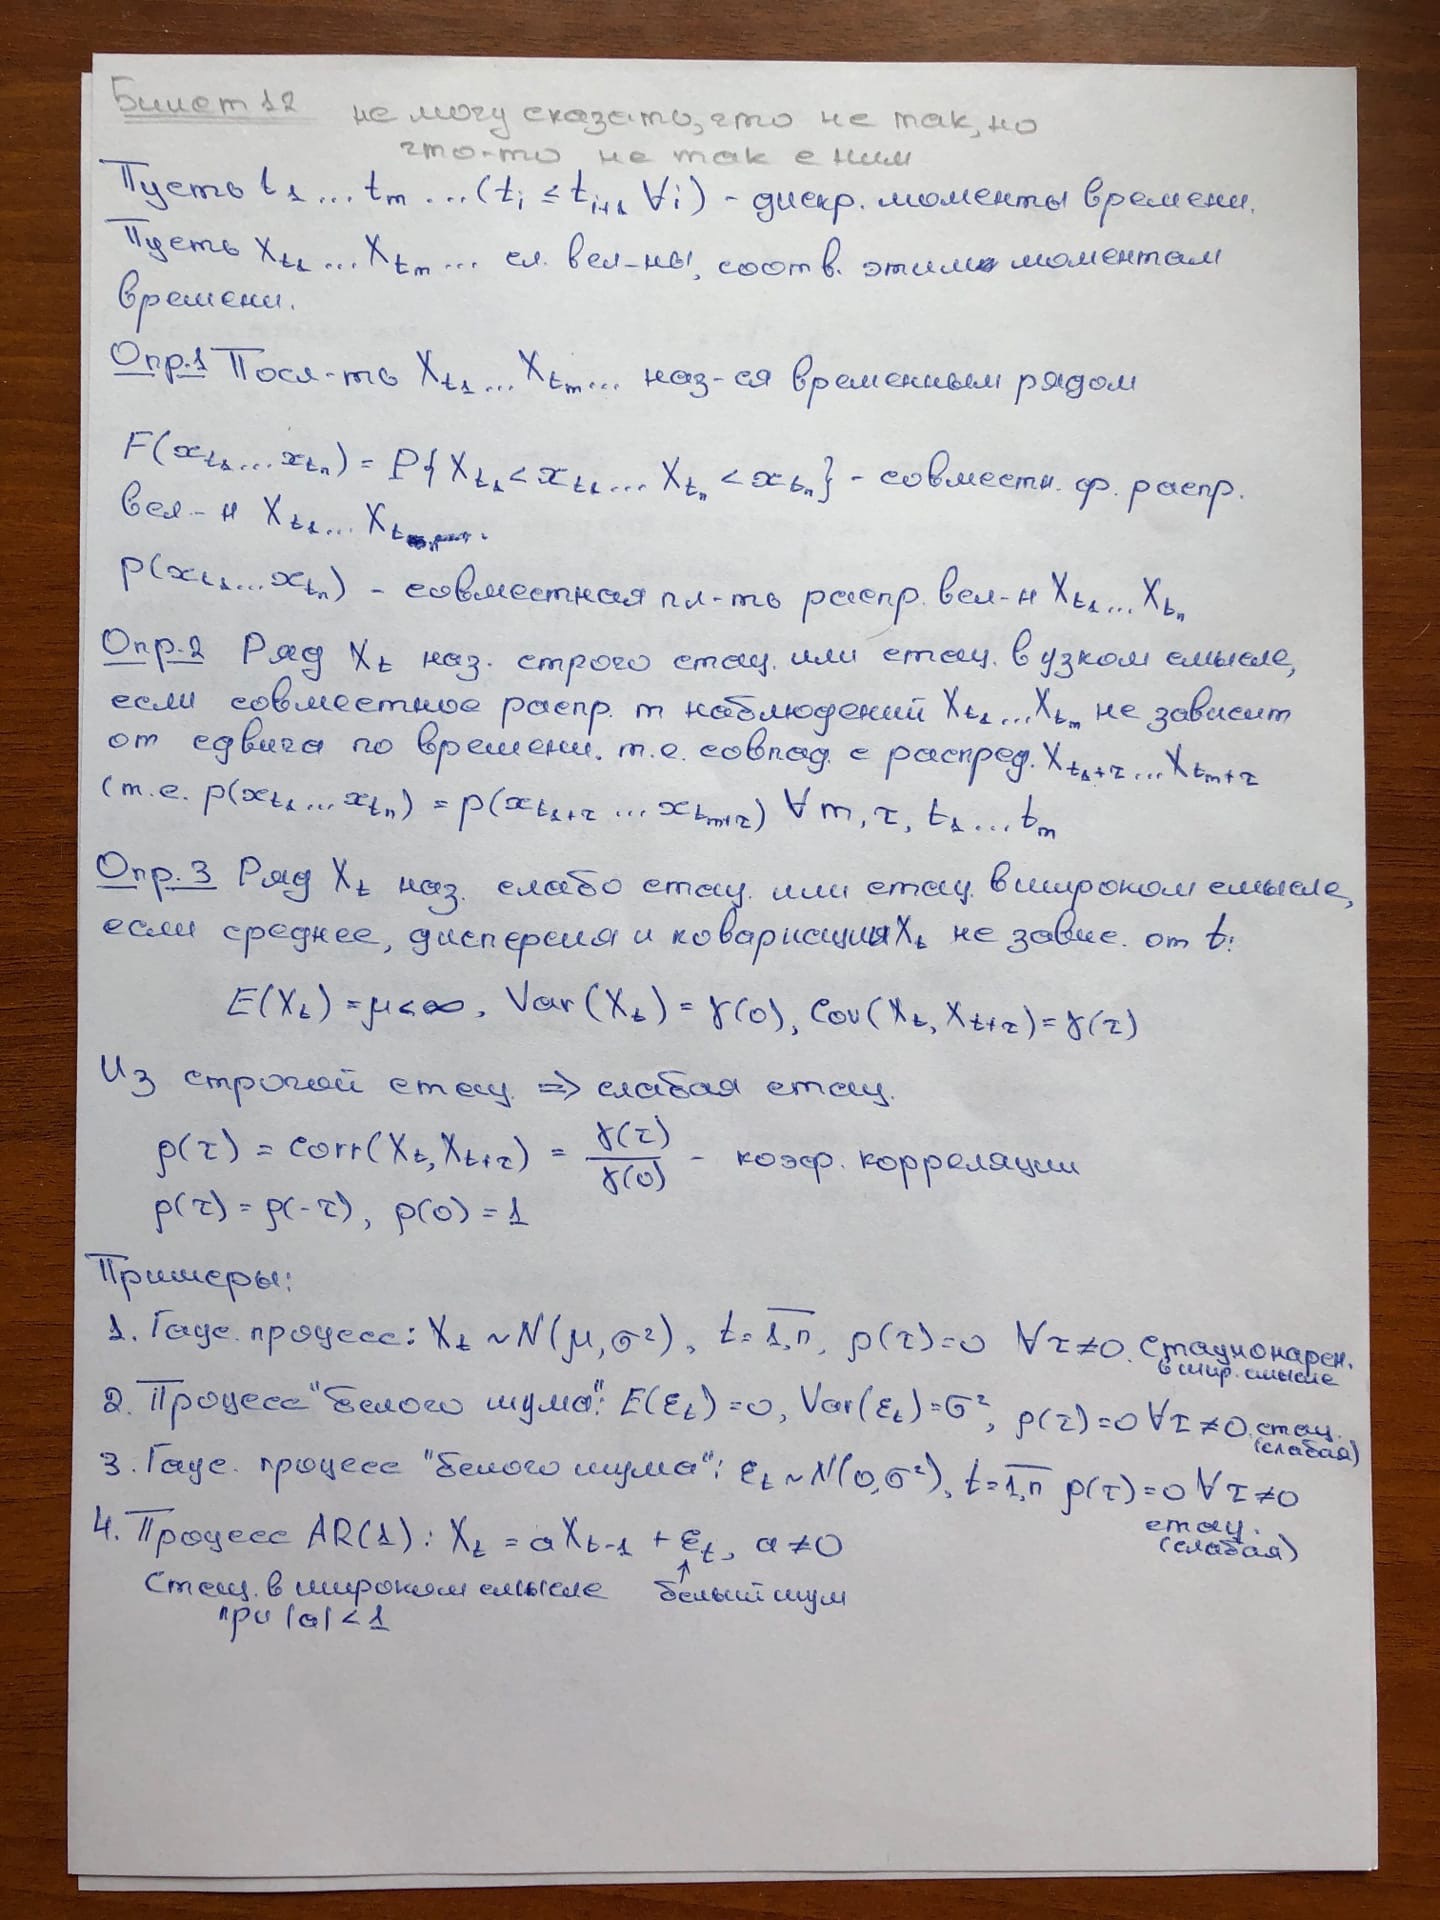 Билет 12 не могу сказать, что не так, но
что-то не так с ним
Пусть t₁...tₘ ...(tᵢ ≤ tᵢ₊₁ ∀i) - дискр. моменты времени.
Пусть X_t₁...X_tₘ ... сл. вел-ны, соотв. этим моментам
времени.
Опр.1 Посл-ть X_t₁...X_tₘ... наз-ся временным рядом
F(x_t₁...x_tₙ) = P{X_t₁ < x_t₁... X_tₙ < x_tₙ} - совместн. ф. распр.
вел-н X_t₁... X_t
p(x_t₁...x_tₙ) - совместная пл-ть распр. вел-н X_t₁...X_tₙ
Опр.2 Ряд X_t наз. строго стац. или стац. в узком смысле,
если совместное распр. m наблюдений X_t₁...X_tₘ не зависит
от сдвига по времени. т.е. совпад. с распред. X_t₁₊τ...X_tₘ₊τ
(т.е. p(x_t₁...x_tₙ) = p(x_t₁₊τ ... x_tₘ₊τ) ∀ m, τ, t₁...tₘ
Опр.3 Ряд X_t наз. слабо стац. или стац. в широком смысле,
если среднее, дисперсия и ковариация X_t не завис. от t:
E(X_t) = μ < ∞, Var(X_t) = γ(0), Cov(X_t, X_t+τ) = γ(τ)
Из строгой стац. => слабая стац.
ρ(τ) = corr(X_t, X_t+τ) = γ(τ)/γ(0) - коэф. корреляции
ρ(τ) = ρ(-τ), ρ(0) = 1
Примеры:
1. Гаус. процесс: X_t ~ N(μ, σ²), t = 1,n, ρ(τ) = 0 ∀τ ≠ 0. стационарен.
в шир. смысле
2. Процесс "белого шума": E(ε_t) = 0, Var(ε_t) = σ², ρ(τ) = 0 ∀τ ≠ 0. стац.
(слабая)
3. Гаус. процесс "белого шума": ε_t ~ N(0, σ²), t = 1,n ρ(τ) = 0 ∀τ ≠ 0
стац.
(слабая)
4. Процесс AR(1): X_t = aX_t-1 + ε_t, a ≠ 0
Стац. в широком смысле ↑ белый шум
при |a| < 1